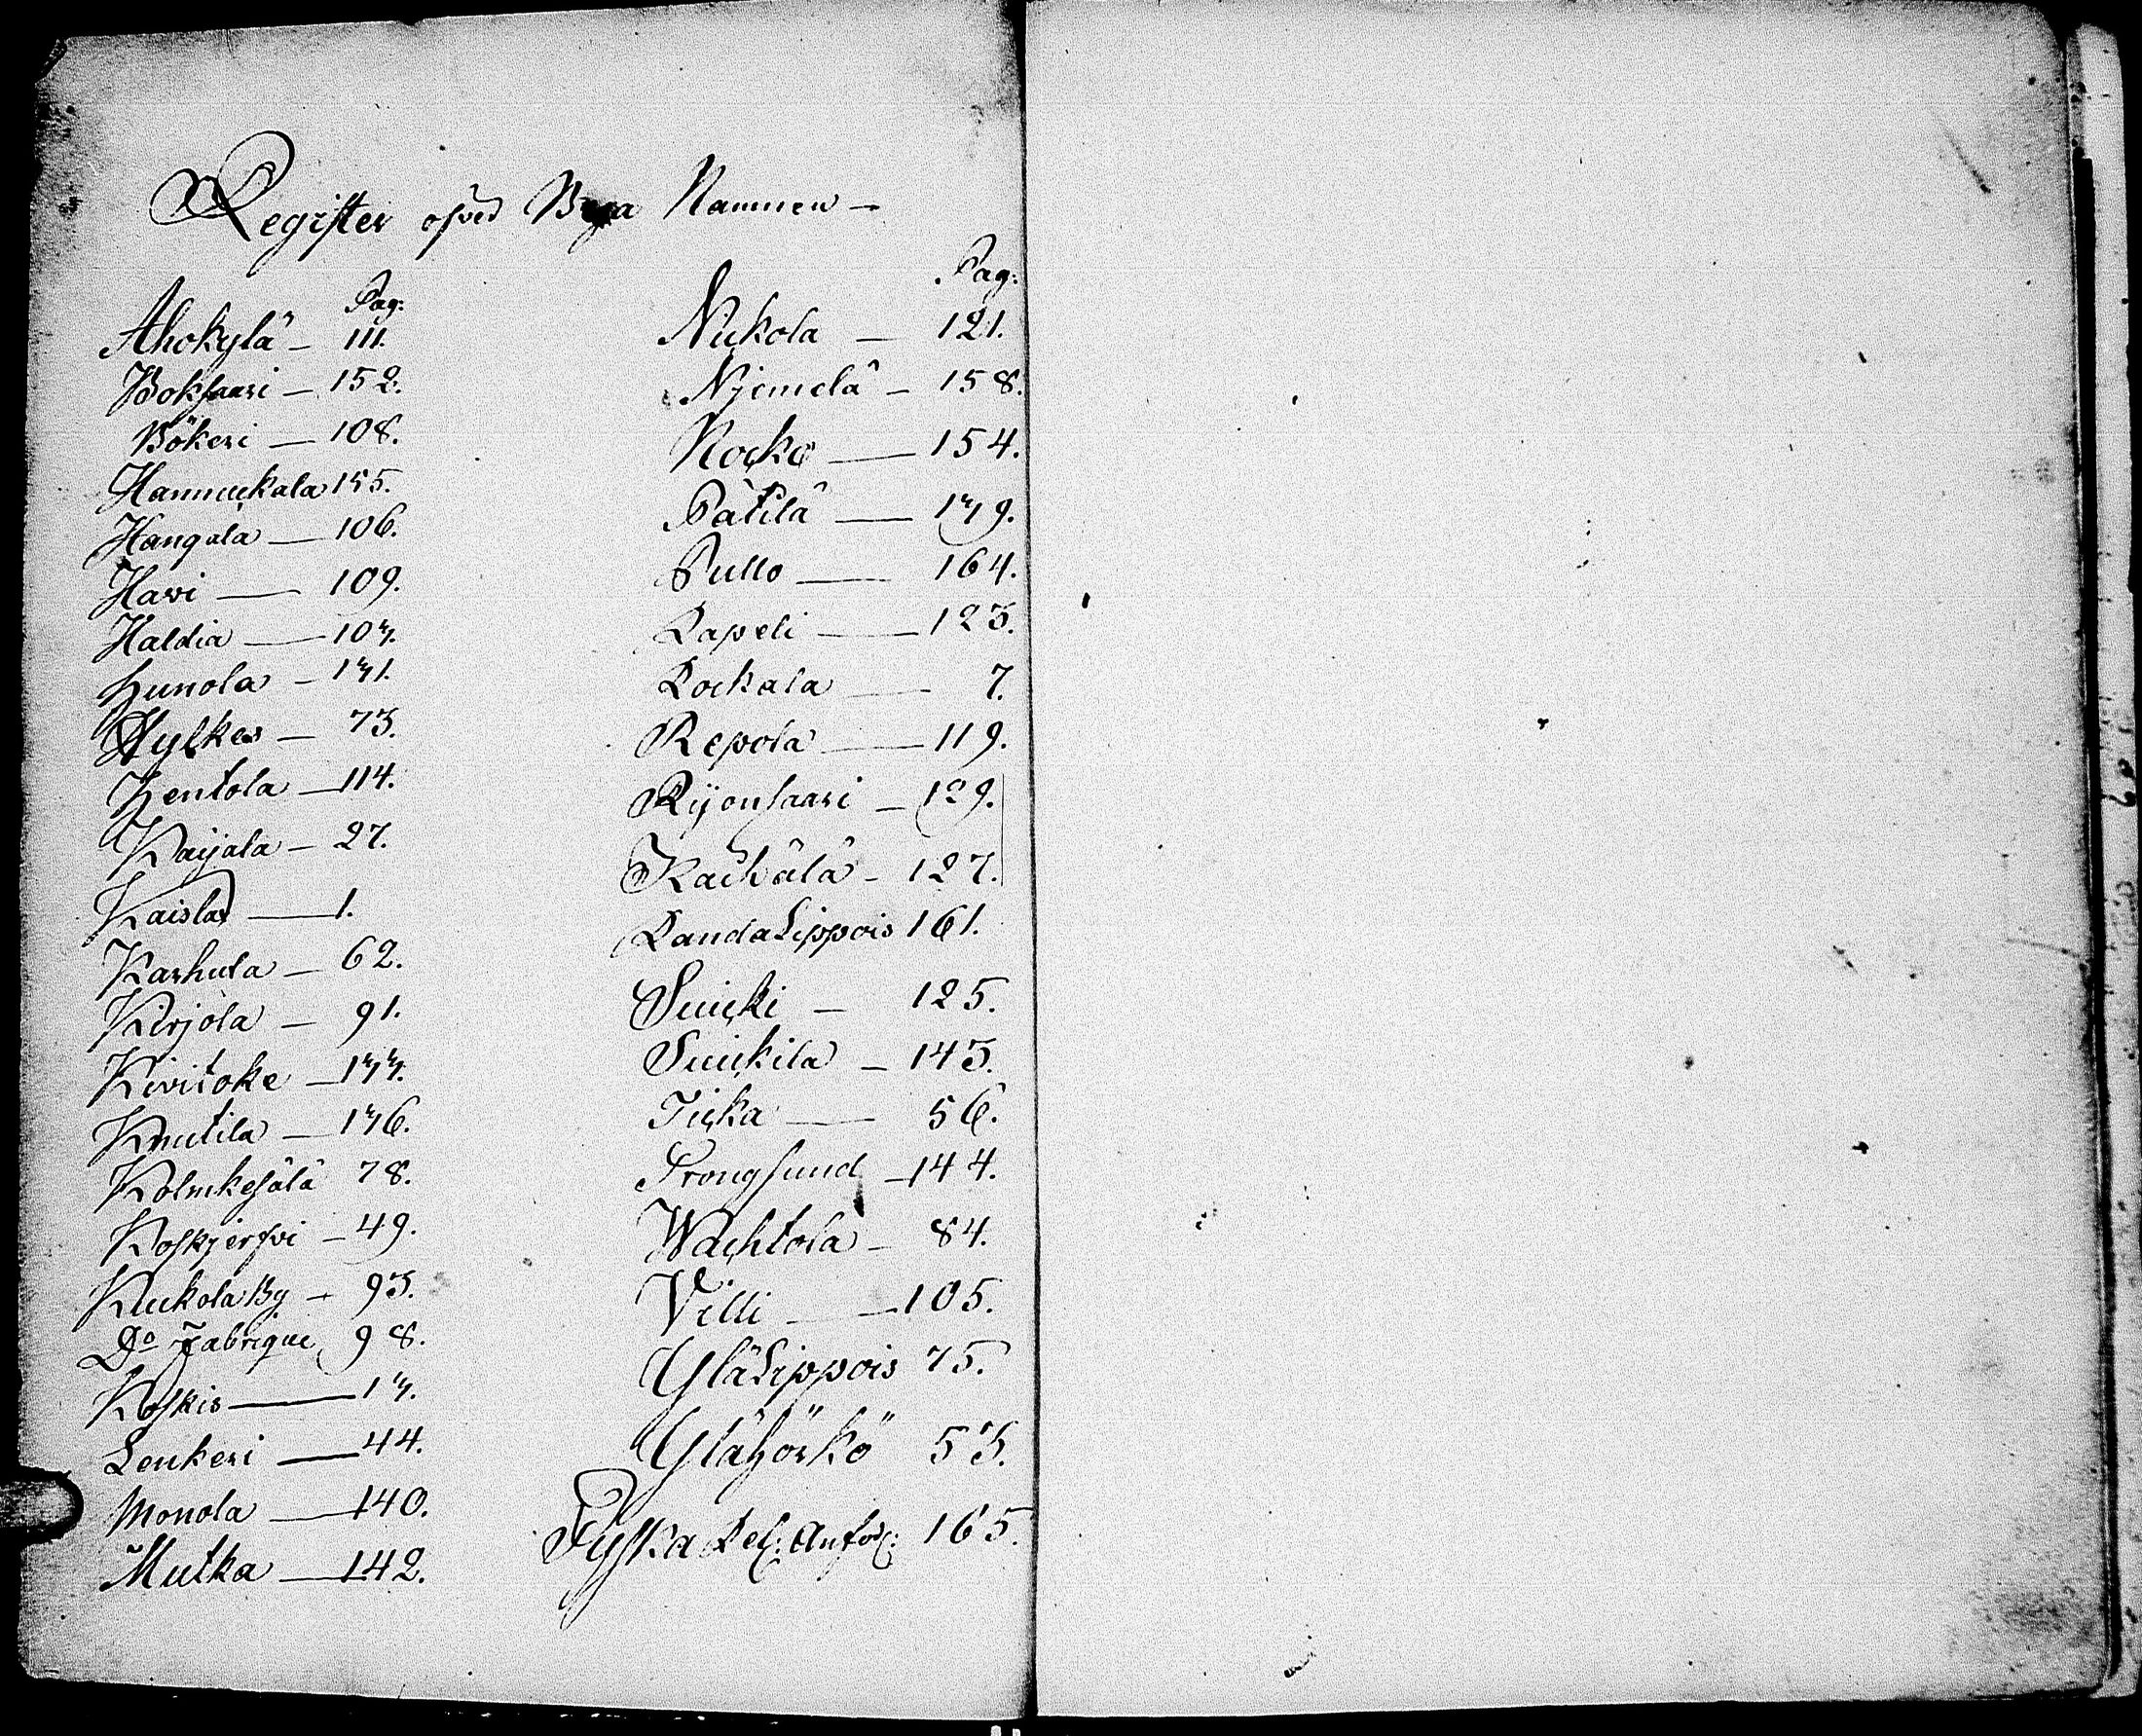 Register öfver Bya Namnen –
Pag:
Ahokylä – 111.
Boksaari – 152.
Bökeri – 108.
Hannuckala 155.
Hangala – 106.
Havi – 109.
Haldia – 107.
Hunola – 171.
Hylkes – 73.
Hentola – 114.
Kaijala – 27.
Kaislax – 1.
Karhula – 62.
Kirjola – 91.
Kivitoke – 177.
Knutila – 176.
Kolmkesälä 78.
Koskjerfvi – 49.
Kuckola By – 93.
Do Fabrique 98.
Koskis – 17.
Lenkeri – 44.
Monola – 140.
Mutka – 142.
Pag:
Nickola – 121.
Njemelä – 158.
Nocko – 154.
Pätilä – 179.
Pullo – 164.
Rapeli – 123.
Rockala – 7.
Repola – 119.
Rijonsaari – 129.
Kachälä – 127.
RandaLippois 161.
Suicki – 125.
Suickila – 143.
Ticka – 56.
Trongsund – 144.
Wachtola – 84.
Villi – 105.
YläLippois 75.
Ylähörkö 53.
Tyska Ref: Anförv: 165.